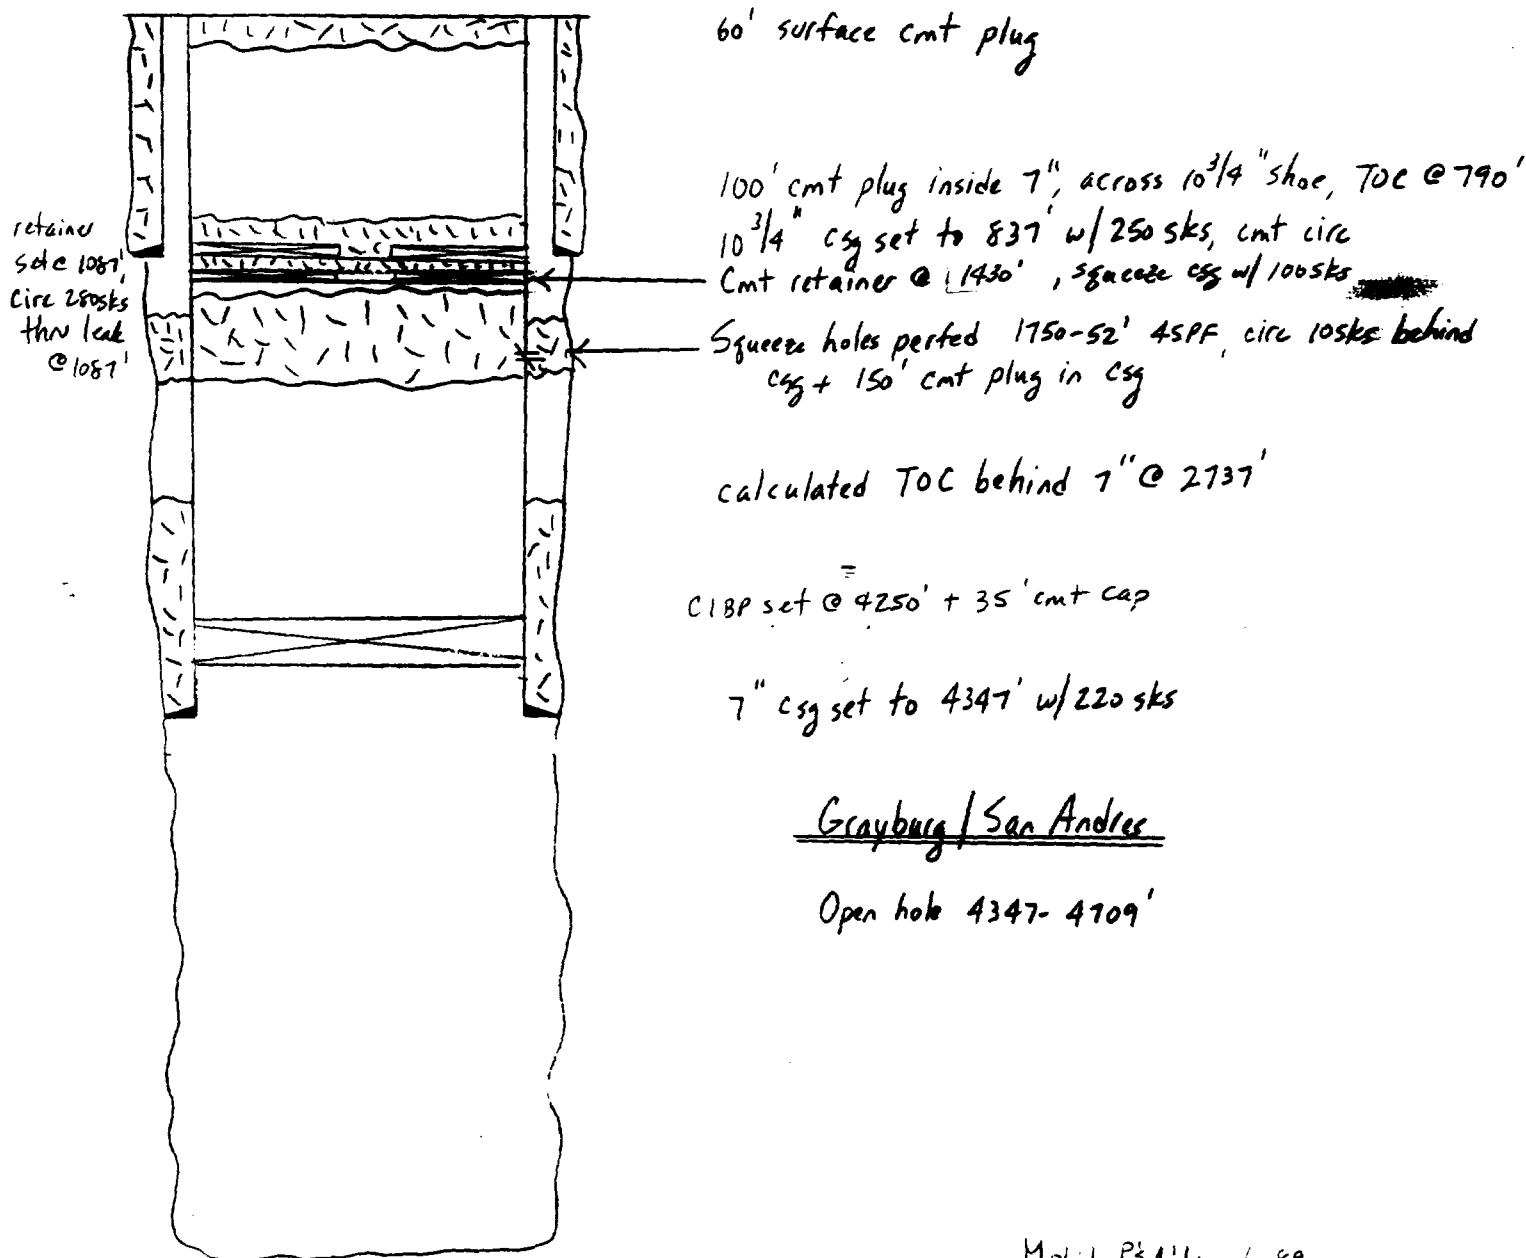 60' surface cmt plug
100' cmt plug inside 7", across 10 3/4" shoe, TOC @ 790'
10 3/4" csg set to 837' w/ 250 sks, cmt circ
Cmt retainer @ 1430', squeeze csg w/ 100 sks
Squeeze holes perfed 1750-52' 4SPF, circ 10sks behind
csg + 150' cmt plug in csg
retainer
set @ 1087',
Circ 280sks
thru leak
@ 1087'
calculated TOC behind 7" @ 2737'
CIBP set @ 4250' + 35' cmt cap
7" csg set to 4347' w/ 220 sks
Grayburg / San Andres
Open hole 4347- 4709'